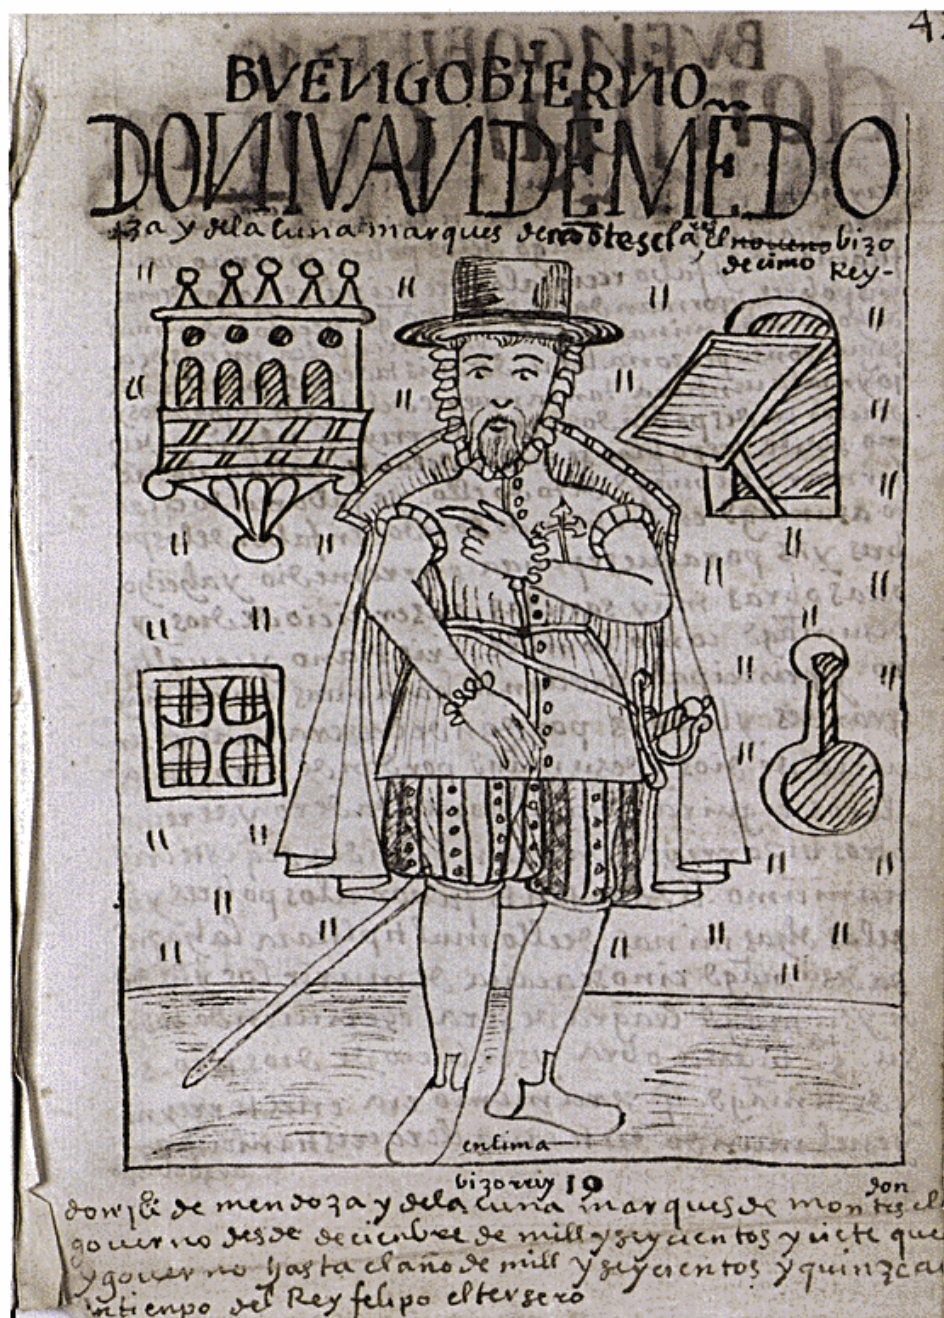 4
BVENGOBIERNO
DONIVANDEMẼDO
za y dela luna marques de mõtescla el noueno bizo
decimo Rey-
en lima
bizorrey 10 don
don juº de mendoza y dela luna marques de montescl
gouerno desde deciembre de mill y seycientos y ciete que
y gouerno hasta el año de mill y seycientos y quinze a
en tienpo del Rey felipo el tersero